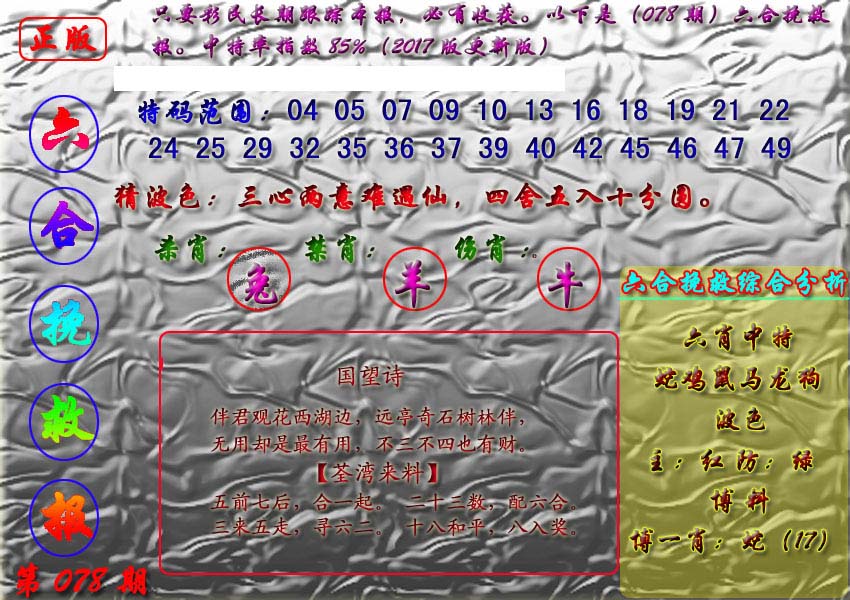 正版
只要彩民长期跟踪本报，必有收获。以下是（078期）六合挽救
报。中特率指数85%（2017版更新版）
特码范围：04 05 07 09 10 13 16 18 19 21 22
24 25 29 32 35 36 37 39 40 42 45 46 47 49
猜波色：三心两意难遇仙，四舍五入十分圆。
杀肖：兔 禁肖：羊 伤肖：牛。
六合挽救报
第078期
国望诗
伴君观花西湖边，远亭奇石树林伴，
无用却是最有用，不三不四也有财。
【荃湾来料】
五前七后，合一起。 二十三数，配六合。
三来五走，寻六二。 十八和平，八入奖。
六合挽救综合分析
六肖中特
蛇鸡鼠马龙狗
波色
主：红防：绿
博料
博一肖：蛇（17）